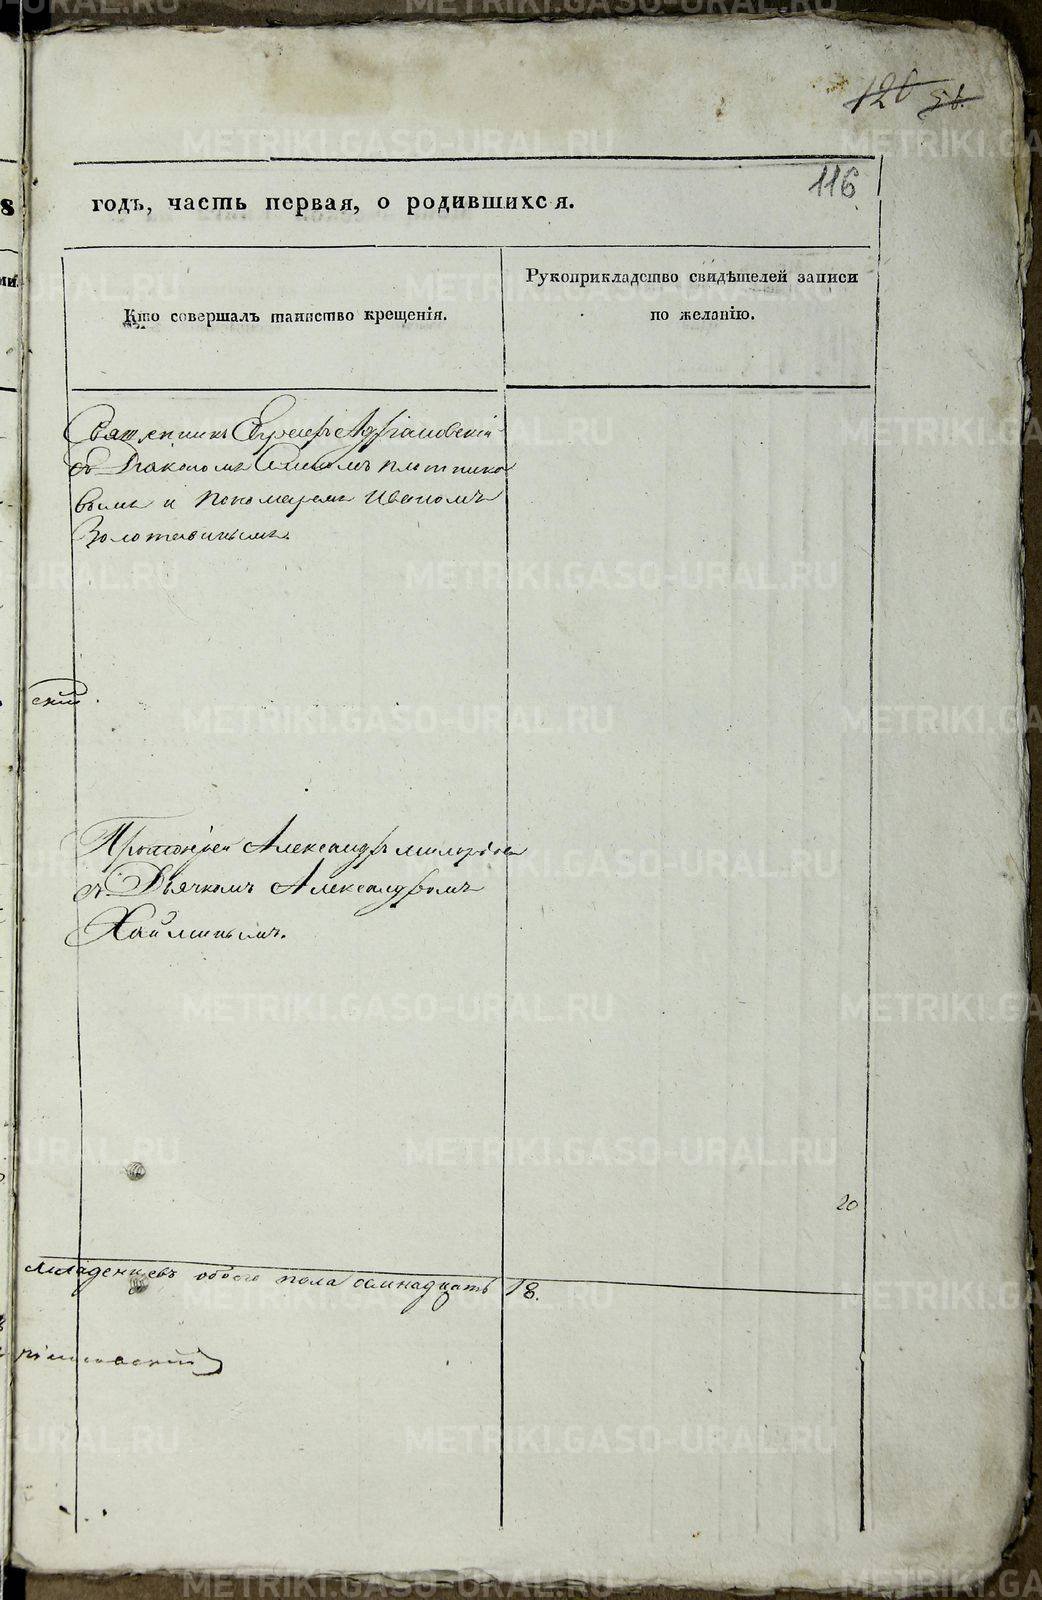 120 56.
116
8 годъ, часть первая, о родившихся.
Кто совершалъ таинство крещенія.
Рукоприкладство свидѣтелей записи
по желанію.
Священникъ Адріановскій
съ Діакономъ Плотнико
вымъ и пономаремъ Иваномъ
Золотавинымъ.
скій.
Протоіерей Александръ
съ Дьячкомъ Александромъ
Хайминымъ.
20
младенцевъ обоего пола 18.
METRIKI.GASO-URAL.RU